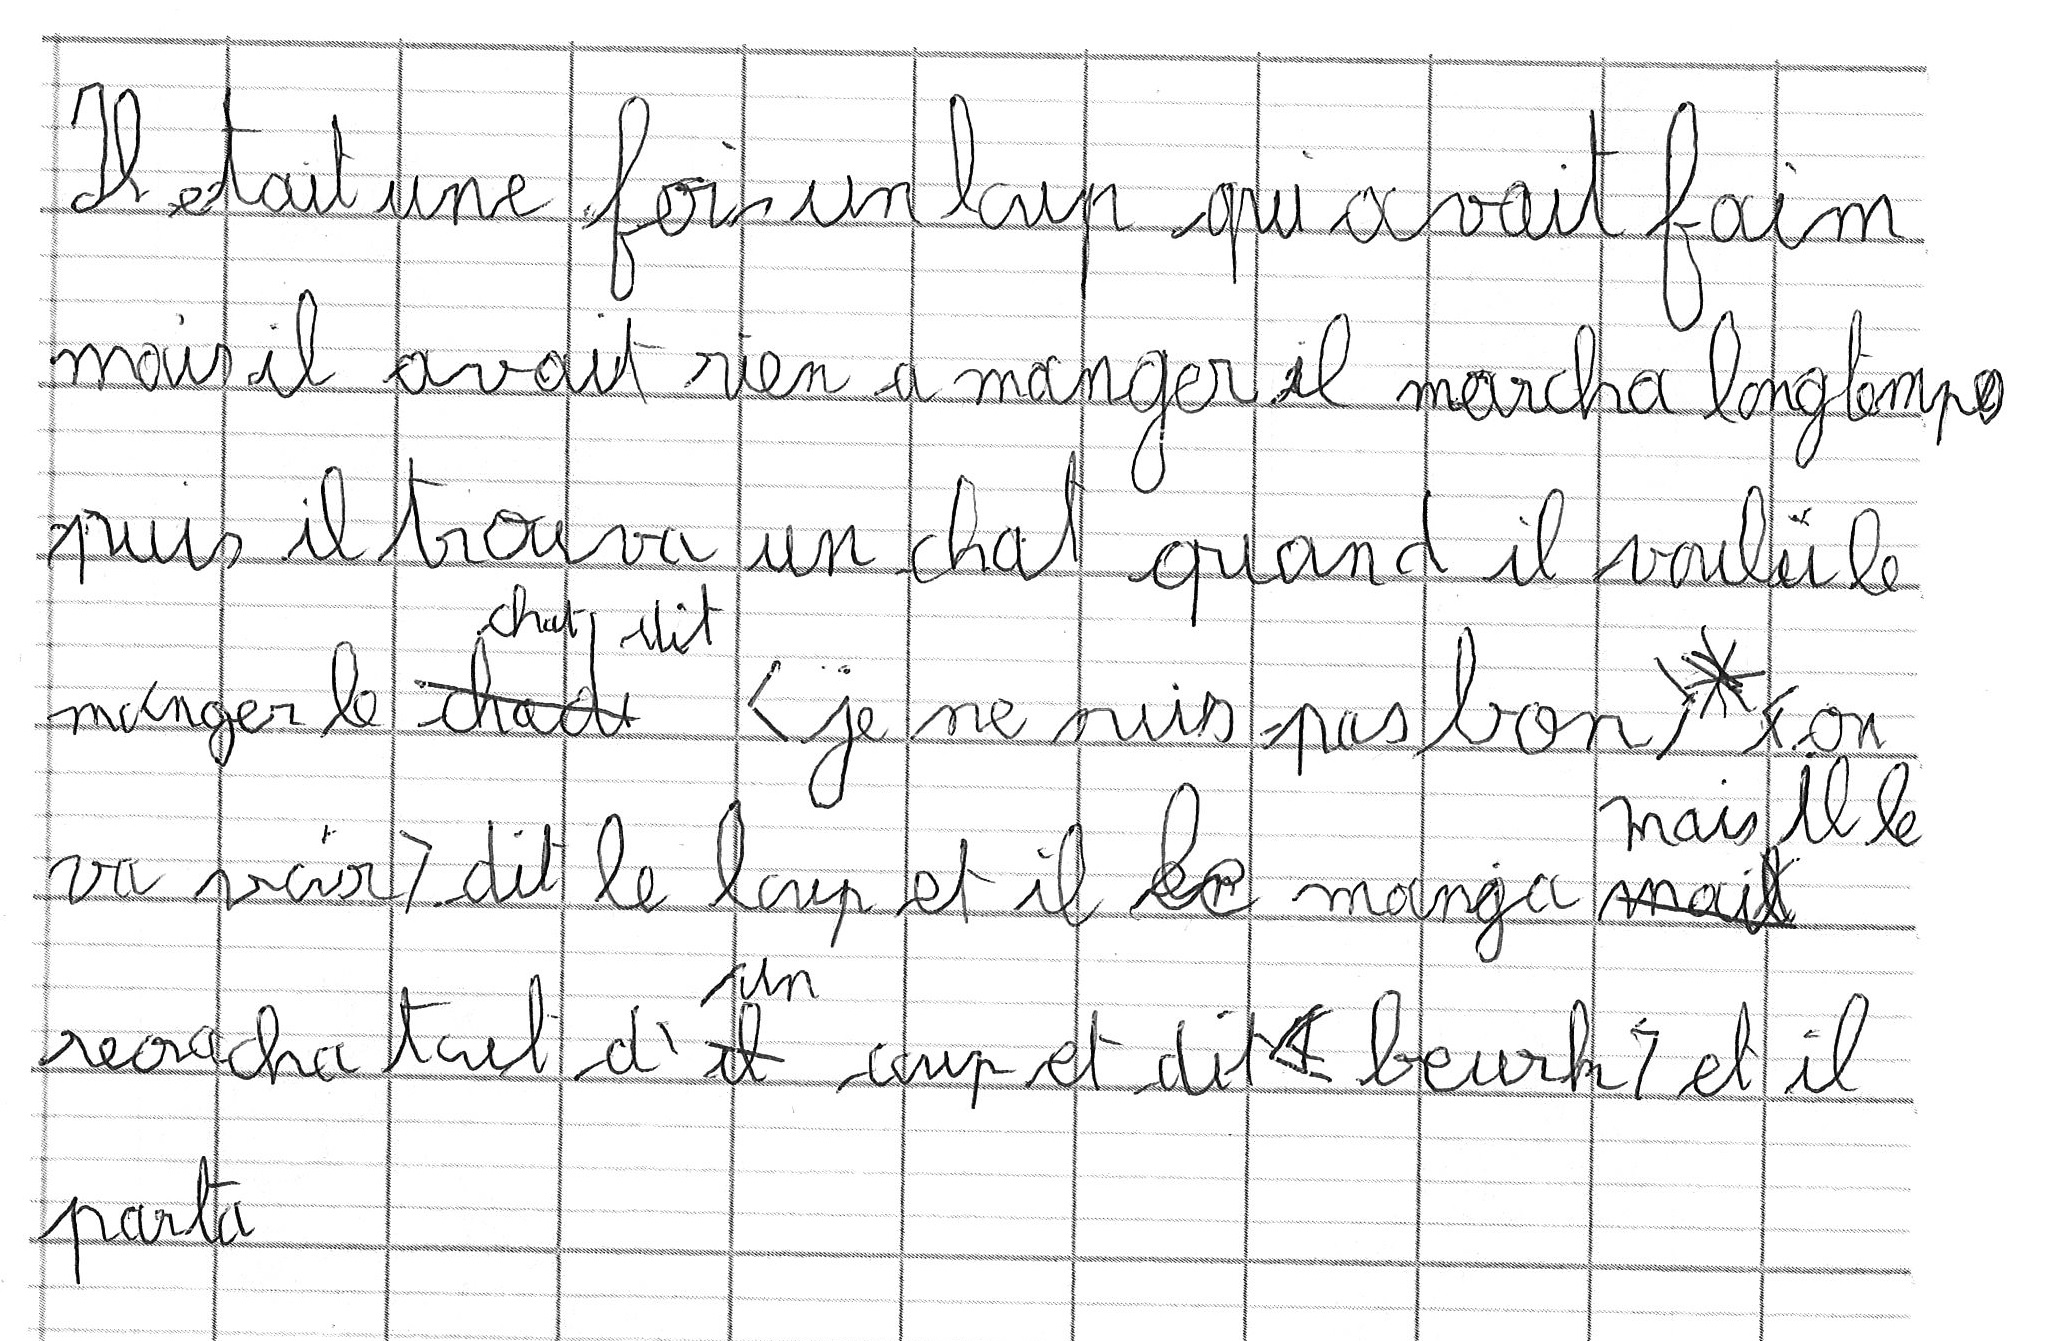 Il etait une fois un loup qui avait faim
mais il avait rien a manger il marcha longtemps
puis il trouva un chat quand il voulu le
chat dit
manger le < je ne suis pas bon > < on
mais il le
va voir > dit le loup et il le manga
un
recracha tout d' coup et dit < beurk > et il
parta